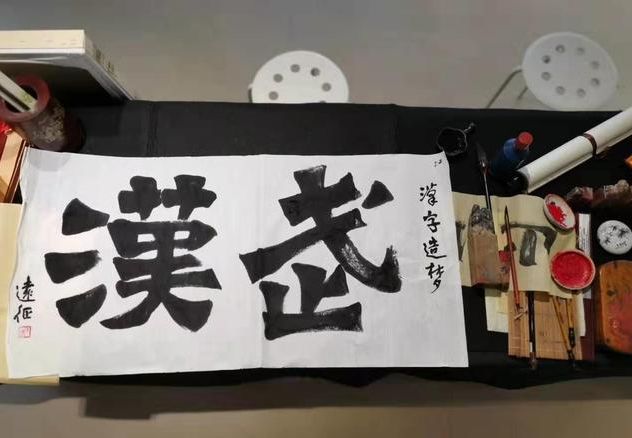 汉字造梦
武漢
遠征